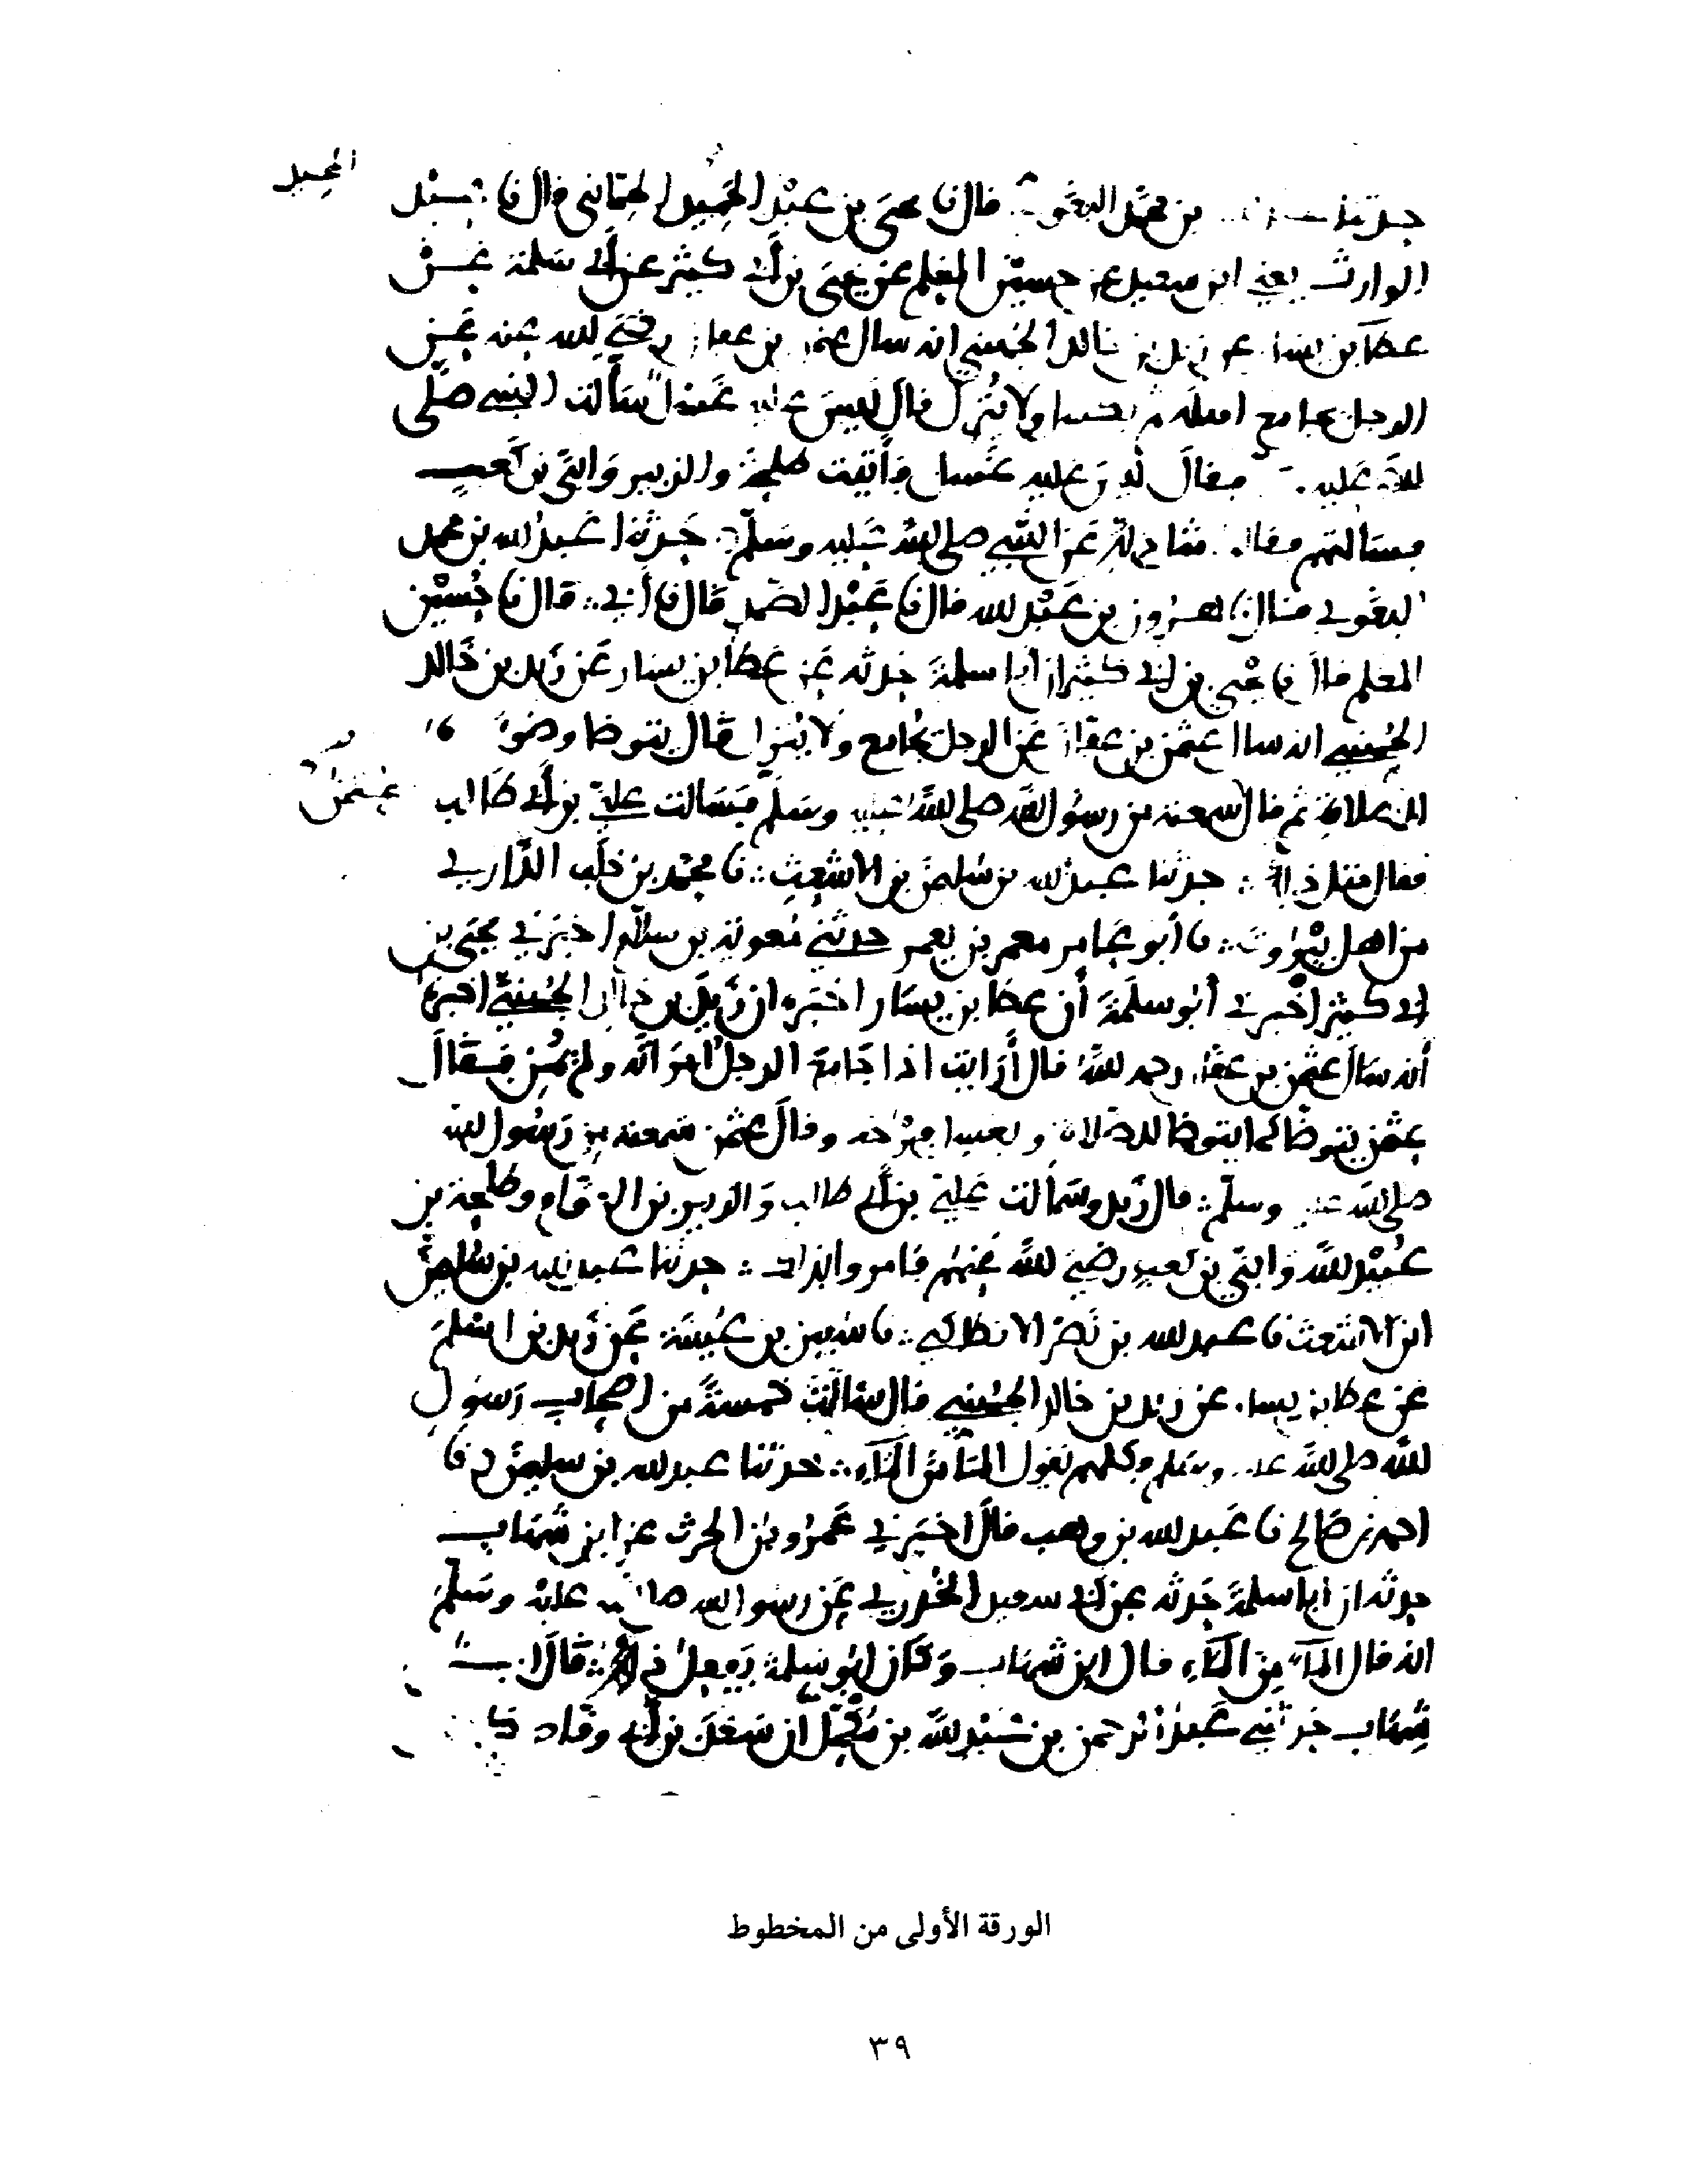 المجيد
حدثنا بن محمد البغوي قال نا يحيى بن عبد الحميد الحماني قال نا عبد
الوارث يعني ابن سعيد عن حسين المعلم عن يحيى بن أبي كثير عن أبي سلمة عن
عطا بن يسار عن زيد بن خالد الجهني انه سال عثمن بن عفان رضي الله عنه عن
الرجل يجامع اهله ثم ولا يُنزل قال ليس عليه غسل سألت النبي صلى
الله عليه فقال ليس عليه غسل فأتيت طلحة والزبير وأبيّ بن كعب
فسالتهم فقالوا مثل ذلك عن النبي صلى الله عليه وسلم ∴ حدثنا عبد الله بن محمد
البغوي قال نا هرون بن عبد الله قال نا عبد الصمد قال نا أبي ∴ قال نا حسين
المعلم قال نا يحيى بن ابي كثير ان أبا سلمة حدثه عن عطا بن يسار عن زيد بن خالد
الجهني انه سال عثمن بن عفان عن الرجل يجامع ولا ينزل قال يتوضا وضوءا
عثمن
للصلاة ثم قال سمعته من رسول الله صلى الله عليه وسلم فسالت علي بن أبي طالب
فقال مثل ذلك ∴ حدثنا عبد الله بن سليمن بن الاشعث ∴ نا محمد بن خلف الداري
من اهل بيروت ∴ نا أبو عامر معمر بن يعمر حدثني معوية بن سلام اخبرني يحيى بن
ابي كثير اخبرني أبو سلمة أن عطا بن يسار اخبره ان زيد بن خالد الجهني اخبره
أنه سال عثمن بن عفان رحمه الله قال أرايت اذا جامع الرجل امراته ولم يمن فقال
عثمن يتوضا كما يتوضا للصلاة ويغسل فرجه وقال عثمن سمعته من رسول الله
صلى الله عليه وسلم ∴ قال زيد وسألت علي بن أبي طالب والزبير بن العوام وطلحة بن
عبيد الله وأبيّ بن كعب رضي الله عنهم فامروا بذلك ∴ حدثنا عبد الله بن سليمن
ابن الاشعث نا عبد الله بن نصر الانطاكي ∴ نا سفين بن عيينة عن زيد بن اسلم
عن عطا بن يسار عن زيد بن خالد الجهني قال سألت خمسة من اصحاب رسول
الله صلى الله عليه وسلم وكلهم يقول الماء من الماء ∴ حدثنا عبد الله بن سليمن نا
احمد بن صالح نا عبد الله بن وهب قال اخبرني عمرو بن الحرث عن ابن شهاب
حدثه ان أبا سلمة حدثه عن أبي سعيد الخدري عن رسول الله صلى الله عليه وسلم
انه قال الماء من الماء قال ابن شهاب وكان ابو سلمة يفعل ذلك ∴ قال ابن
شهاب حدثني عبد الرحمن بن عبد الله بن مكمل ان سعد بن أبي وقاص
الورقة الأولى من المخطوط
٣٩